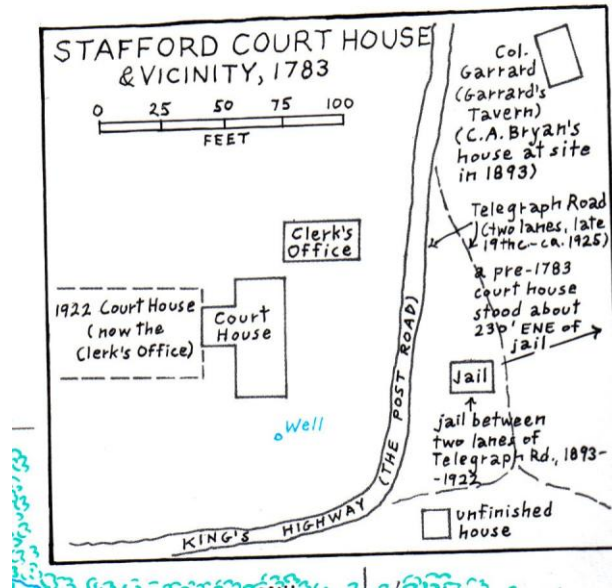 STAFFORD COURT HOUSE
& VICINITY, 1783
0 25 50 75 100
FEET
Col.
Garrard
(Garrard's
Tavern)
(C.A. Bryan's
house at site
in 1893)
Telegraph Road
(two lanes, late
19thc.-ca. 1925)
a pre-1783
court house
stood about
230' ENE of
jail
Clerk's
Office
1922 Court House
(now the
Clerk's Office)
Court
House
Well
Jail
jail between
two lanes of
Telegraph Rd., 1893-
-1922
unfinished
house
KING'S HIGHWAY (THE POST ROAD)